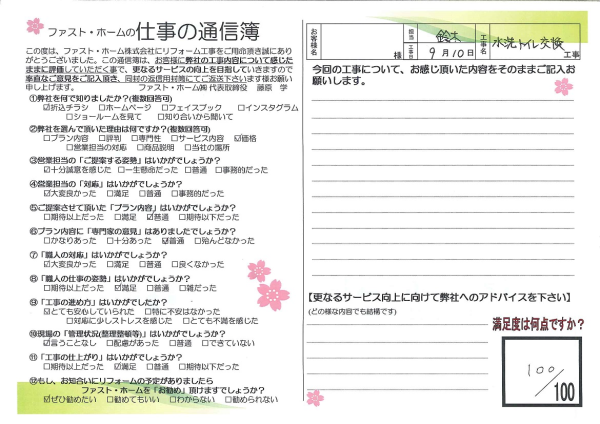 ファスト・ホームの仕事の通信簿
この度は、ファスト・ホーム株式会社にリフォーム工事をご用命頂き誠にあり
がとうございました。この通信簿は、お客様に弊社の工事内容について感じた
ままに評価していただく事で、更なるサービスの向上を目指していきますので
率直なご意見をご記入頂き、同封の返信用封筒にてご返送下さいます様お願い
申し上げます。 ファスト・ホーム㈱ 代表取締役 藤原 学
①弊社を何で知りましたか?(複数回答可)
☑折込チラシ □ホームページ □フェイスブック □インスタグラム
□ショールームを見て □知り合いから聞いて
②弊社を選んで頂いた理由は何ですか?(複数回答可)
□プラン内容 □評判 □専門性 □サービス内容 ☑価格
□営業担当の対応 □商品説明 □当社の場所
③営業担当の「ご提案する姿勢」はいかがでしょうか?
☑十分誠意を感じた □一生懸命だった □普通 □事務的だった
④営業担当の「対応」はいかがでしょうか?
☑大変良かった □満足 □普通 □事務的だった
⑤ご提案させて頂いた「プラン内容」はいかがでしょうか?
□期待以上だった □満足 ☑普通 □期待以下だった
⑥プラン内容に「専門家の意見」はありましたでしょうか?
□かなりあった □十分あった ☑普通 □殆んどなかった
⑦「職人の対応」はいかがでしょうか?
☑大変良かった □満足 □普通 □良くなかった
⑧「職人の仕事の姿勢」はいかがでしょうか?
☑期待以上だった □満足 □普通 □雑だった
⑨「工事の進め方」はいかがでしょうか?
☑とても安心していられた □特に不安はなかった
□対応に少しストレスを感じた □とても不満を感じた
⑩現場の「管理状況(整理整頓等)」はいかがでしょうか?
☑言うことなし □配慮があった □普通 □できていない
⑪「工事の仕上がり」はいかがでしょうか?
□期待以上だった ☑満足 □普通 □期待以下だった
⑫もし、お知合いにリフォームの予定がありましたら
ファスト・ホームを「お勧め」頂けますでしょうか?
☑ぜひ勧めたい □勧めてもいい □わからない □勧められない
お客様名 様 担当 鈴木 工事日 9月10日 工事名 水洗トイレ交換 工事
今回の工事について、お感じ頂いた内容をそのままご記入お
願いします。
【更なるサービス向上に向けて弊社へのアドバイスを下さい】
(どの様な内容でも結構です)
満足度は何点ですか?
100/100